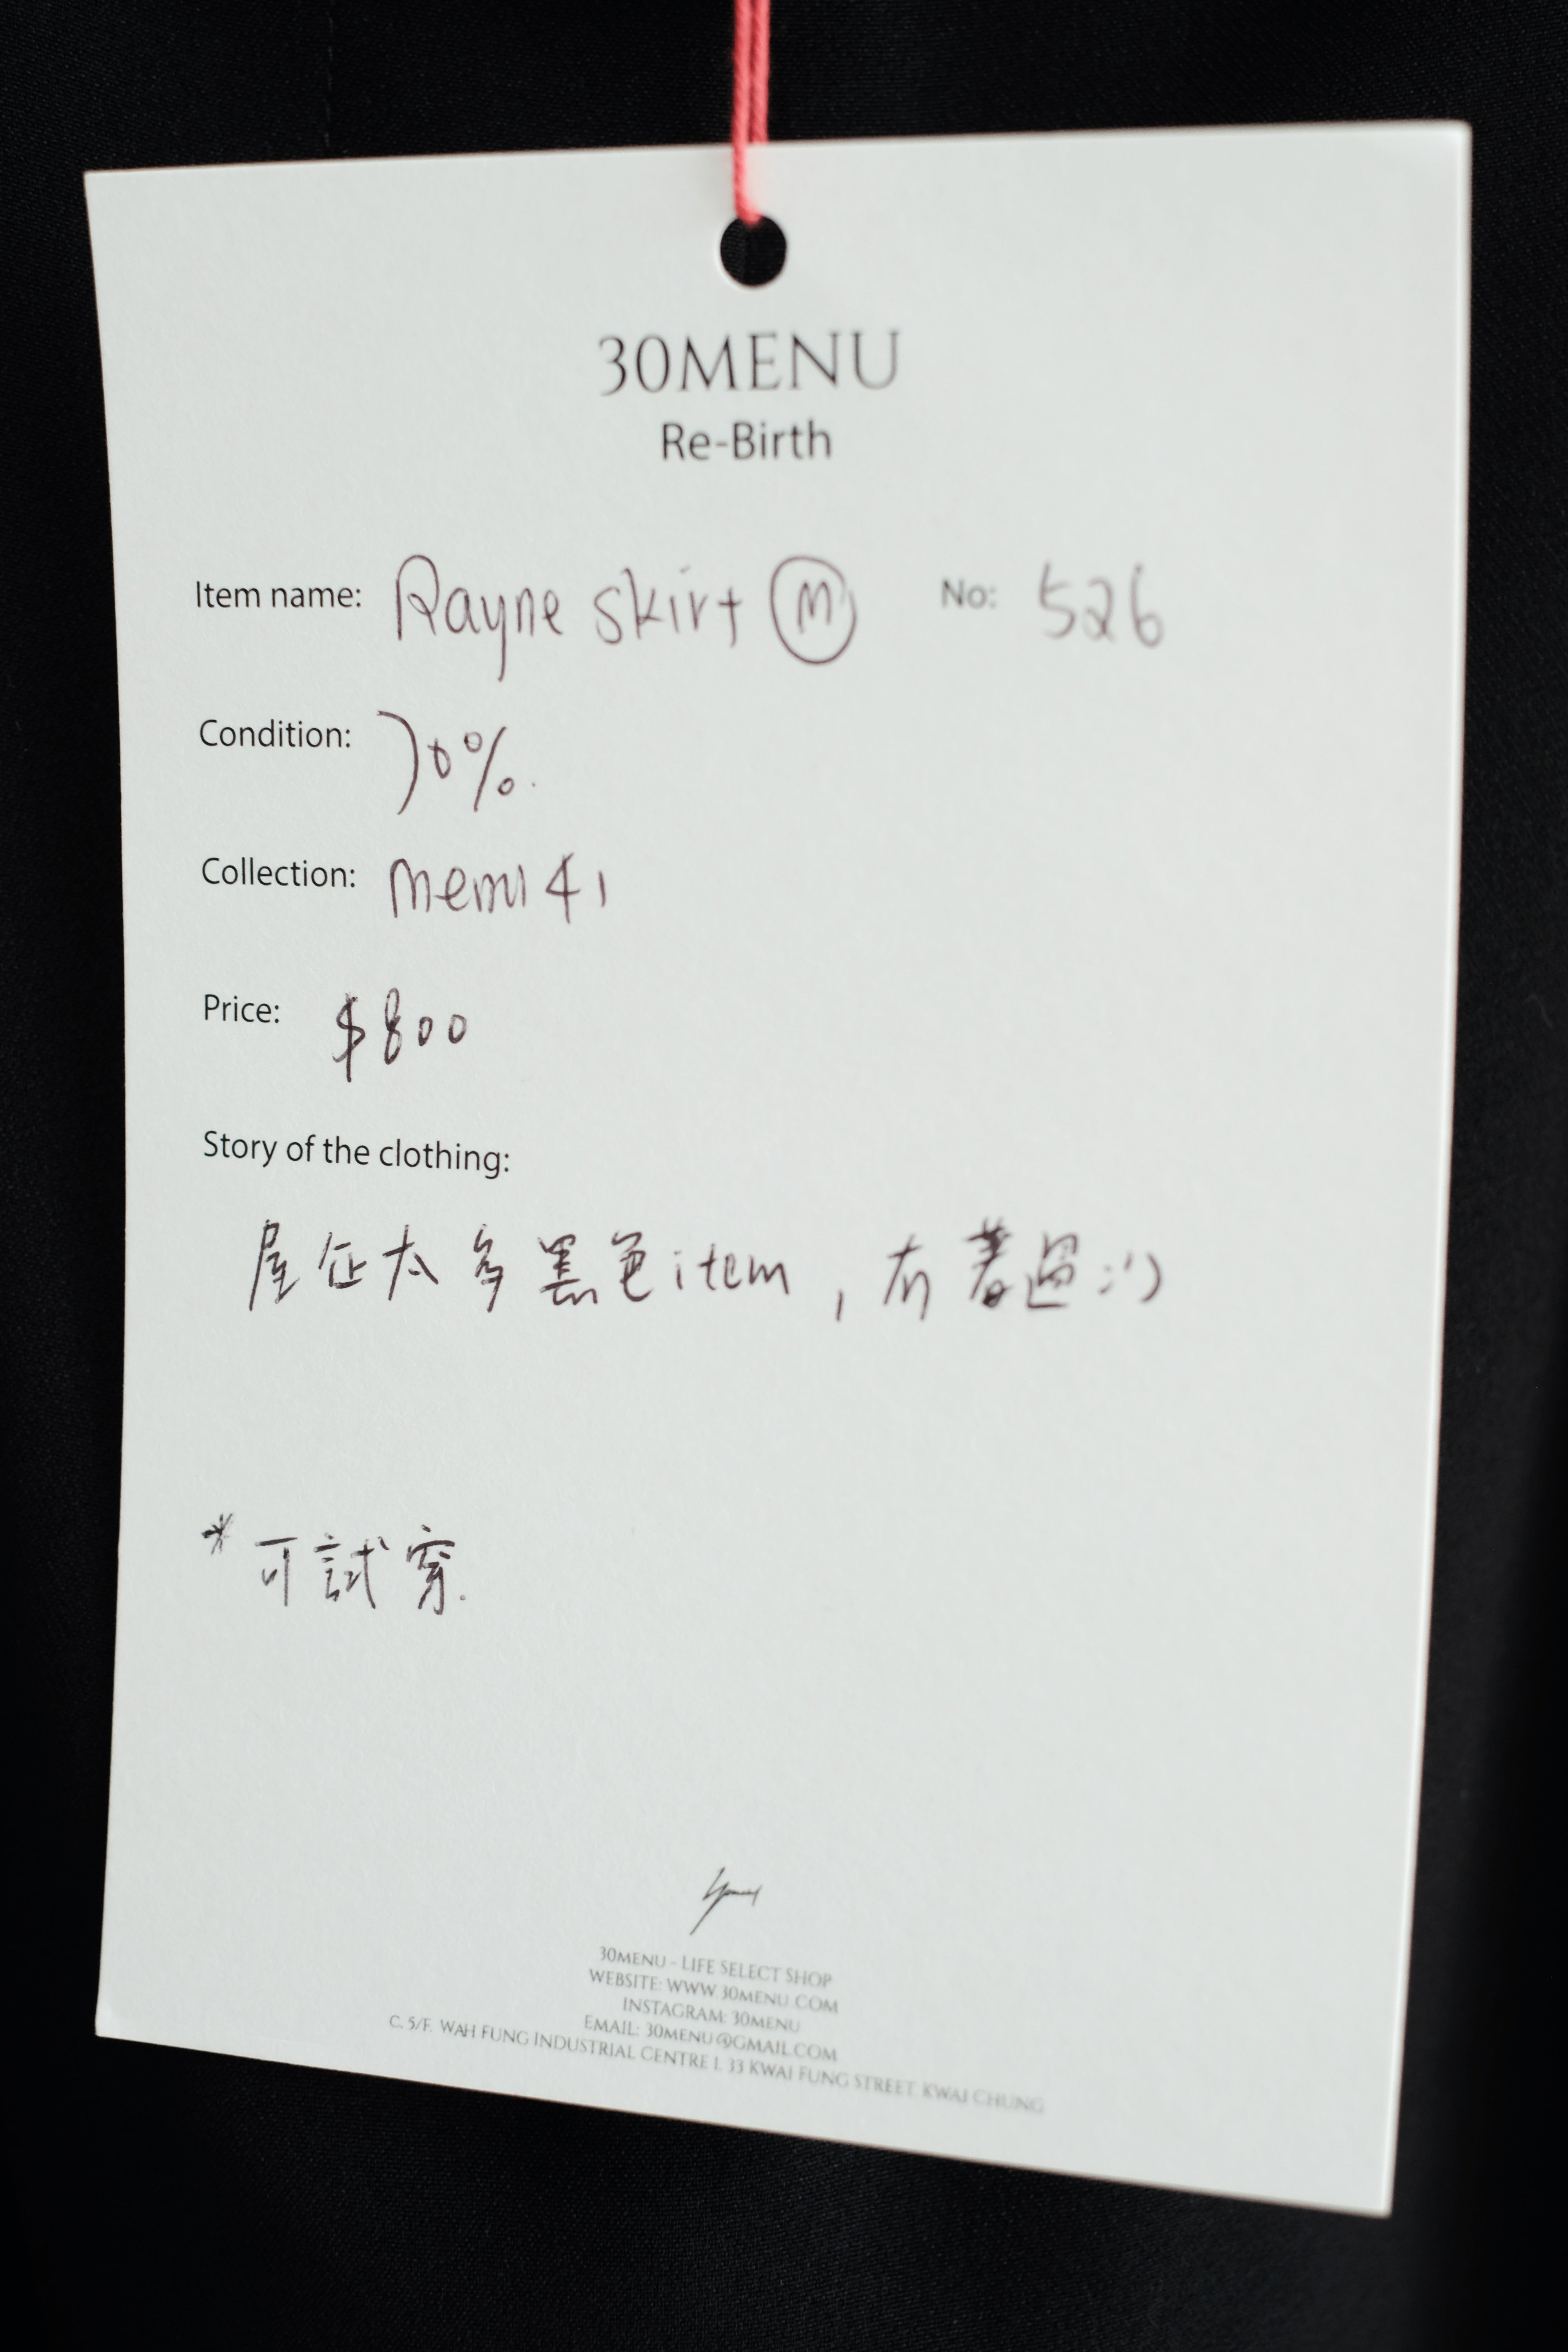 30MENU
Re-Birth
Item name: Rayne skirt Ⓜ No: 526
Condition: 70%.
Collection: Memi 41
Price: $800
Story of the clothing:
屋企太多黑色item, 冇著過 :')
*可試穿.
30MENU - LIFE SELECT SHOP
WEBSITE: WWW.30MENU.COM
INSTAGRAM: 30MENU
EMAIL: 30MENU@GMAIL.COM
C, 5/F, WAH FUNG INDUSTRIAL CENTRE I, 33 KWAI FUNG STREET, KWAI CHUNG